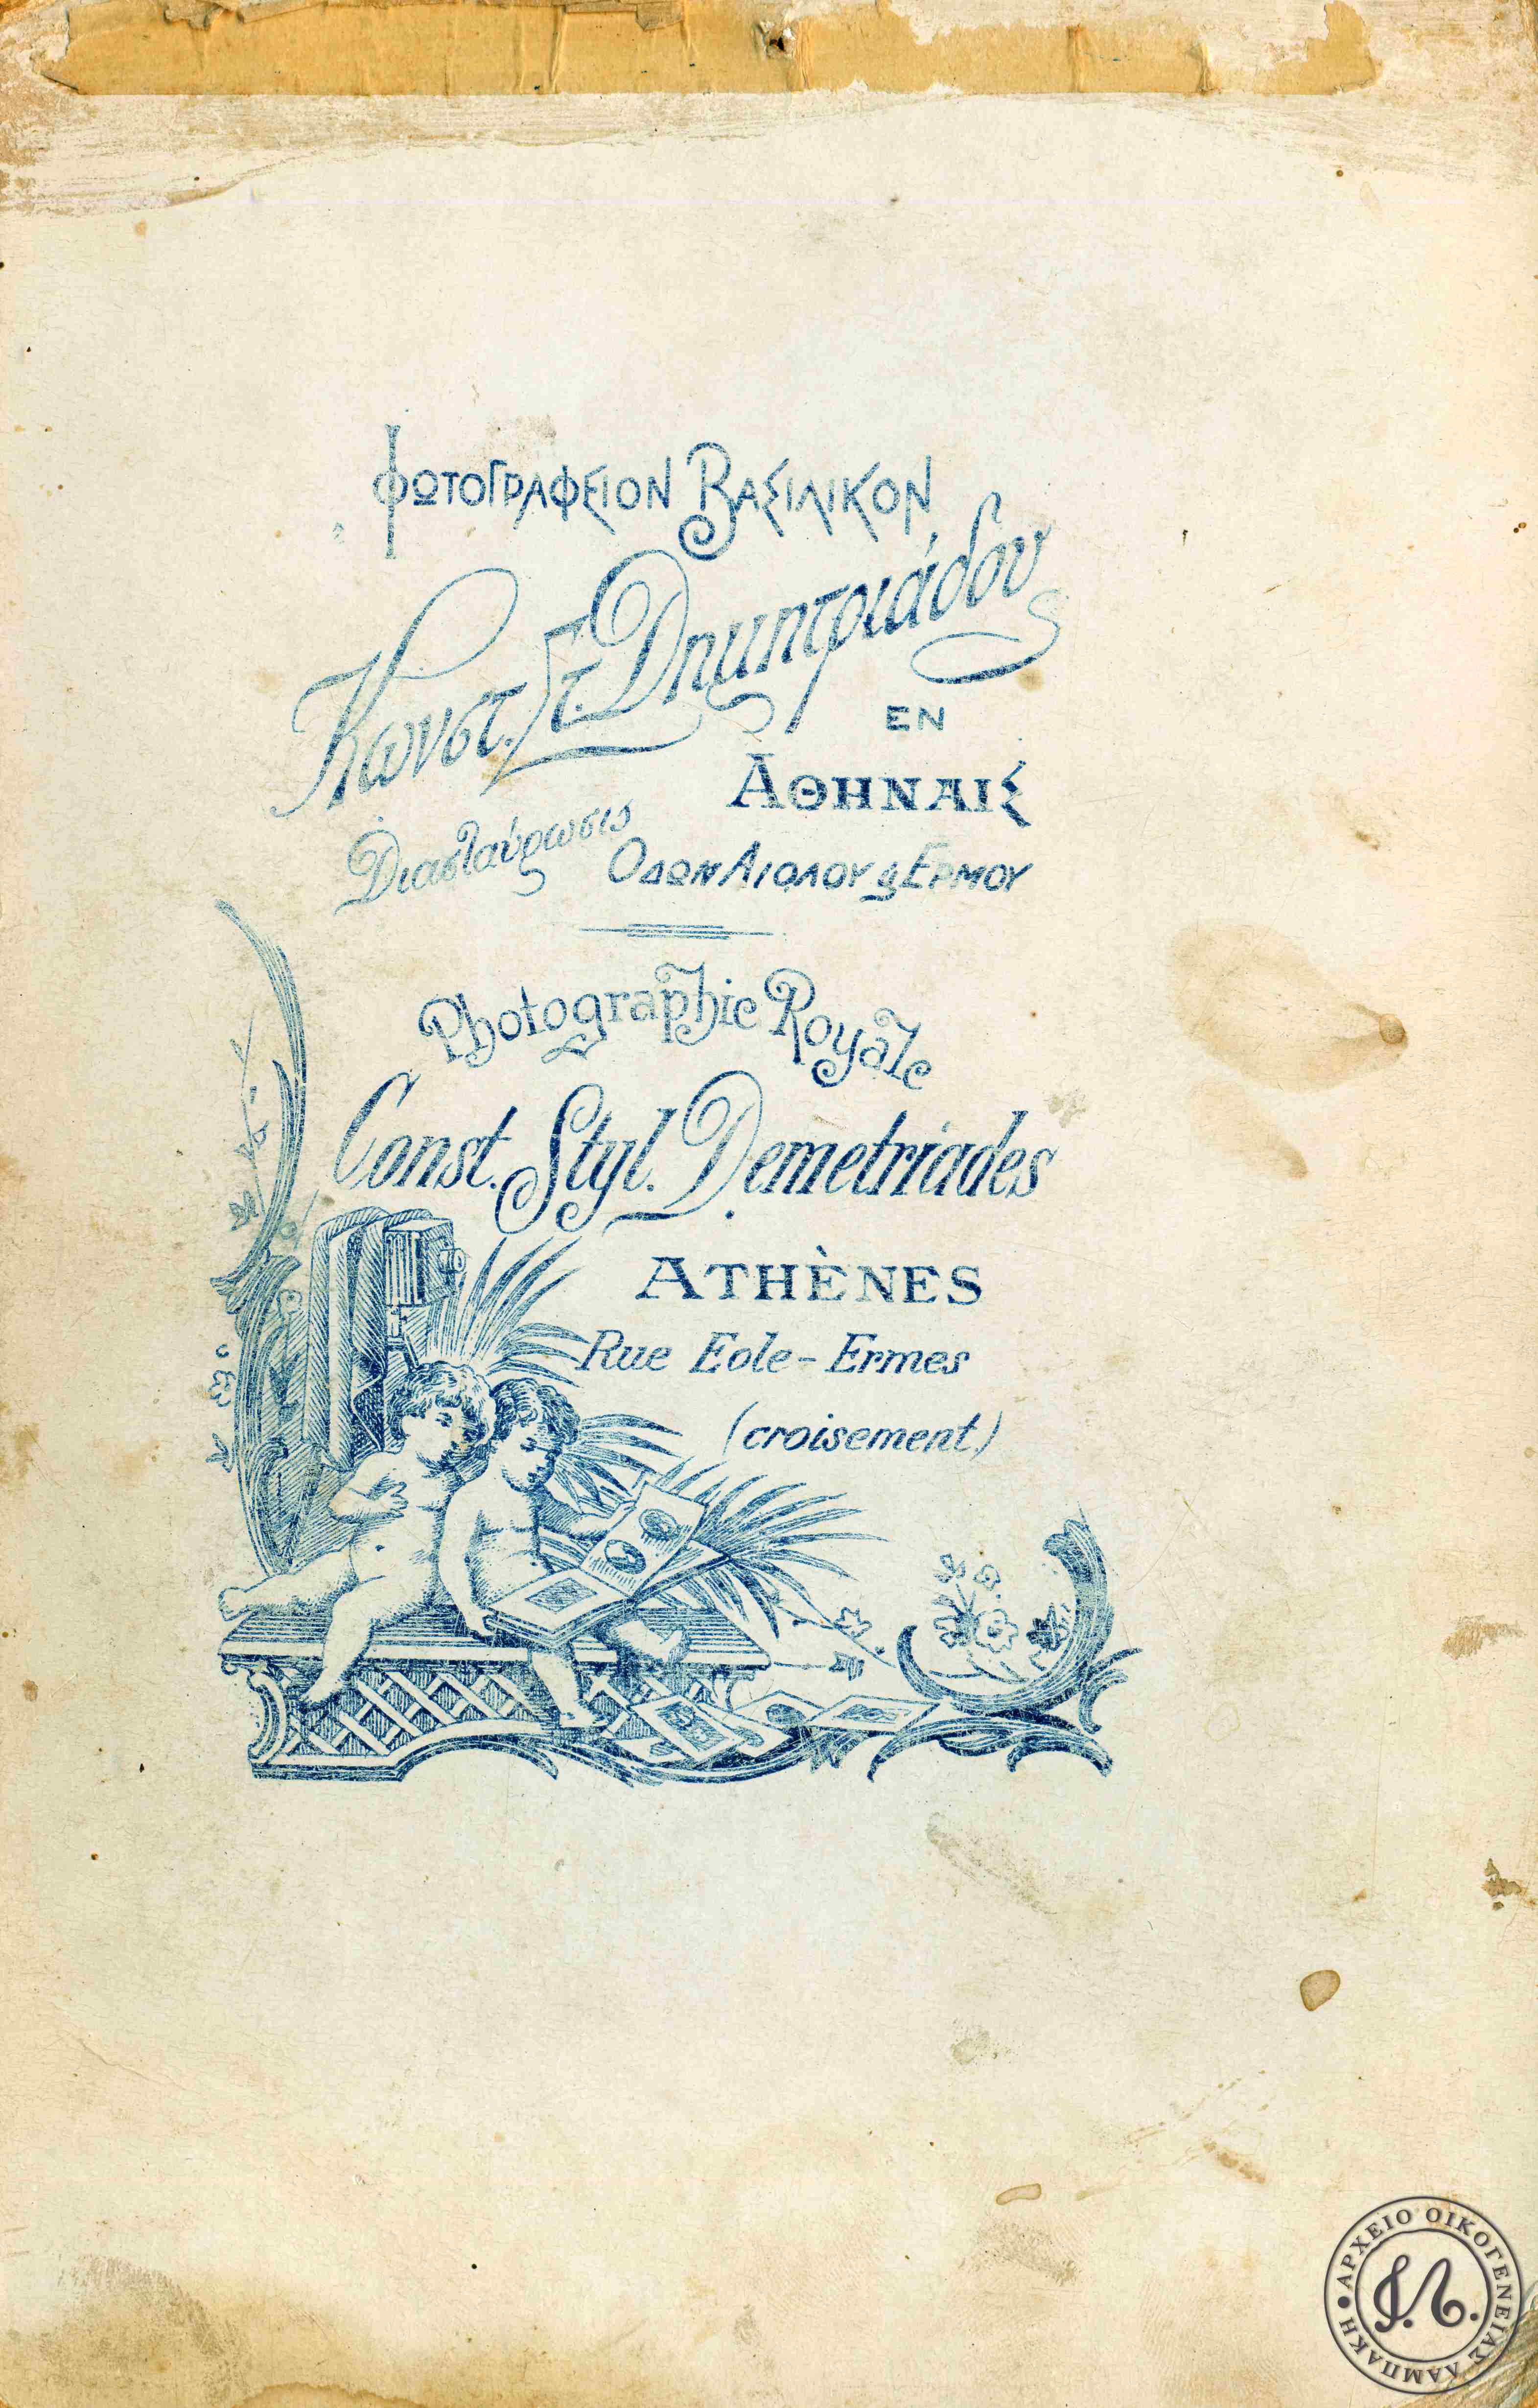 ΦΩΤΟΓΡΑΦΕΙΟΝ ΒΑΣΙΛΙΚΟΝ
Κωνστ. Στ. Δημητριάδου
ΕΝ
ΑΘΗΝΑΙΣ
Διασταύρωσις
ΟΔΩΝ ΑΙΟΛΟΥ & ΕΡΜΟΥ
Photographie Royale
Const. Styl. Demetriades
ATHÈNES
Rue Eole-Ermes
(croisement)
ΑΡΧΕΙΟ ΟΙΚΟΓΕΝΕΙΑΣ ΛΑΜΠΑΚΗ